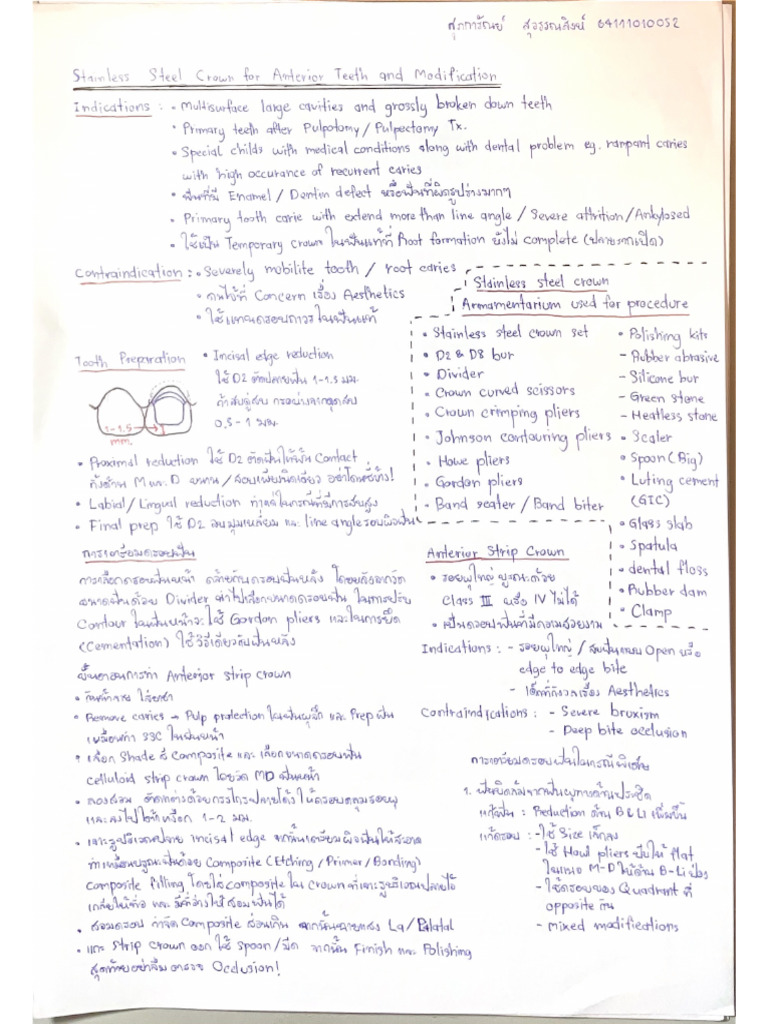 ศุภการัณย์ สุวรรณสิงห์ 64111010052
Stainless Steel Crown for Anterior Teeth and Modification
Indications : • Multisurface large cavities and grossly broken down teeth
• Primary teeth after Pulpotomy / Pulpectomy Tx.
• Special childs with medical conditions along with dental problem eg. rampant caries
with high occurance of recurrent caries
• ฟันที่มี Enamel / Dentin defect หรือฟันที่ผิดรูปร่างมากๆ
• Primary tooth carie with extend more than line angle / Severe attrition / Ankylosed
• ใช้เป็น Temporary crown ในฟันแท้ที่ Root formation ยังไม่ complete (ปลายรากเปิด)
Contraindication : • Severely mobilite tooth / root caries
• คนไข้ที่ Concern เรื่อง Aesthetics
• ใช้แทนครอบถาวรในฟันแท้
Tooth Preparation • Incisal edge reduction
ใช้ D2 ตัดปลายฟัน 1-1.5 มม.
ถ้าสบคู่สบ กรอห่างจากจุดสบ
0.5 - 1 มม.
1-1.5
mm.
• Proximal reduction ใช้ D2 ตัดฟันให้พ้น Contact
ทั้งด้าน M และ D ขนาน / สอบเพียงนิดเดียว อย่าโดนซี่ข้าง!
• Labial / Lingual reduction ทำแค่ในกรณีที่มีการสบสูง
• Final prep ใช้ D2 ลบมุมเหลี่ยม และ line angle รอบผิวฟัน
การเตรียมครอบฟัน
การเลือกครอบฟันหน้า คล้ายกับครอบฟันหลัง โดยหลังจากวัด
ขนาดฟันด้วย Divider นำไปเลือกขนาดครอบฟัน ในการปรับ
Contour ในฟันหน้าจะใช้ Gordon pliers และในการยึด
(Cementation) ใช้วิธีเดียวกับฟันหลัง
ขั้นตอนการทำ Anterior strip crown
• กันน้ำลาย ใส่ยาชา
• Remove caries → Pulp protection ในฟันผุลึก และ Prep ฟัน
เหมือนทำ SSC ในฟันหน้า
• เลือก Shade สี Composite และ เลือกขนาดครอบฟัน
celluloid strip crown โดยวัด MD ฟันหน้า
• ลองสวม ตัดแต่งด้วยกรรไกรปลายโค้ง ให้ครอบคลุมรอยผุ
และลงไปใต้เหงือก 1-2 มม.
• เจาะรูบริเวณปลาย incisal edge จากนั้นเตรียมผิวฟันให้สะอาด
ทำเหมือนบูรณะฟันด้วย Composite (Etching / Primer / Bonding)
composite filling โดยใส่ composite ใน crown ที่เจาะรูบริเวณปลายไว้
เกลี่ยให้ทั่ว และ มีที่ว่างให้ สวมฟันได้
• สวมครอบ กำจัด Composite ส่วนเกิน จากนั้นฉายแสง La / Palatal
• แกะ Strip crown ออก ใช้ spoon / มีด จากนั้น Finish และ Polishing
สุดท้ายอย่าลืม ตรวจ Occlusion!
Stainless steel crown
Armamentarium used for procedure
• Stainless steel crown set
• D2 & D8 bur
• Divider
• Crown curved scissors
• Crown crimping pliers
• Johnson contouring pliers
• Howe pliers
• Gordon pliers
• Band seater / Band biter
• Polishing kits
- Rubber abrasive
- Silicone bur
- Green stone
- Heatless stone
• Scaler
• Spoon (Big)
• Luting cement
(GIC)
• Glass slab
• Spatula
• dental floss
• Rubber dam
• Clamp
Anterior Strip Crown
• รอยผุใหญ่ บูรณะด้วย
Class III หรือ IV ไม่ได้
• เป็นครอบฟันที่มีความสวยงาม
Indications : - รอยผุใหญ่ / สบฟันแบบ Open หรือ
edge to edge bite
- เด็กที่กังวลเรื่อง Aesthetics
Contraindications : - Severe bruxism
- Deep bite occlusion
การเตรียมครอบฟันในกรณีพิเศษ
1. ฟันบิดล้มจากฟันผุทางด้านประชิด
แก้ฟัน : Reduction ด้าน B & Li เพิ่มขึ้น
แก้ครอบ : - ใช้ Size เล็กลง
- ใช้ Howl pliers บีบให้ flat
ในแนว M-D ให้ด้าน B-Li ป่อง
- ใช้ครอบของ Quadrant ที่
opposite กัน
- mixed modifications